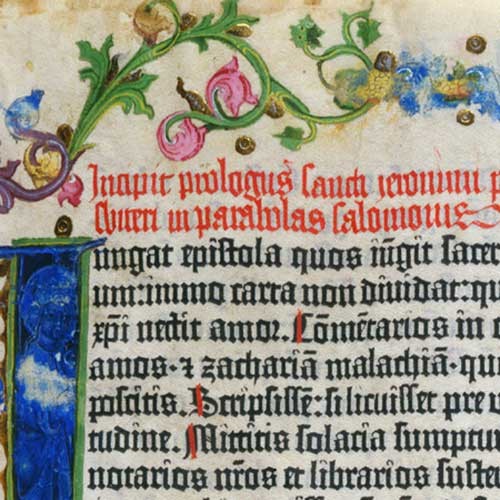 Incipit prologus sancti ieronimi p
sbiteri in parabolas salomonis
Iungat epistola quos iūgit sacer
um: immo carta non dividat: qu
xp̄i nectit amor. Cōmētarios in
amos · ⁊ zachariā malachiā · qu
poscitis. Scripsisse: si licuisset pre
tudine. Mittitis solacia sumptu
notarios nr̄os et librarios suste